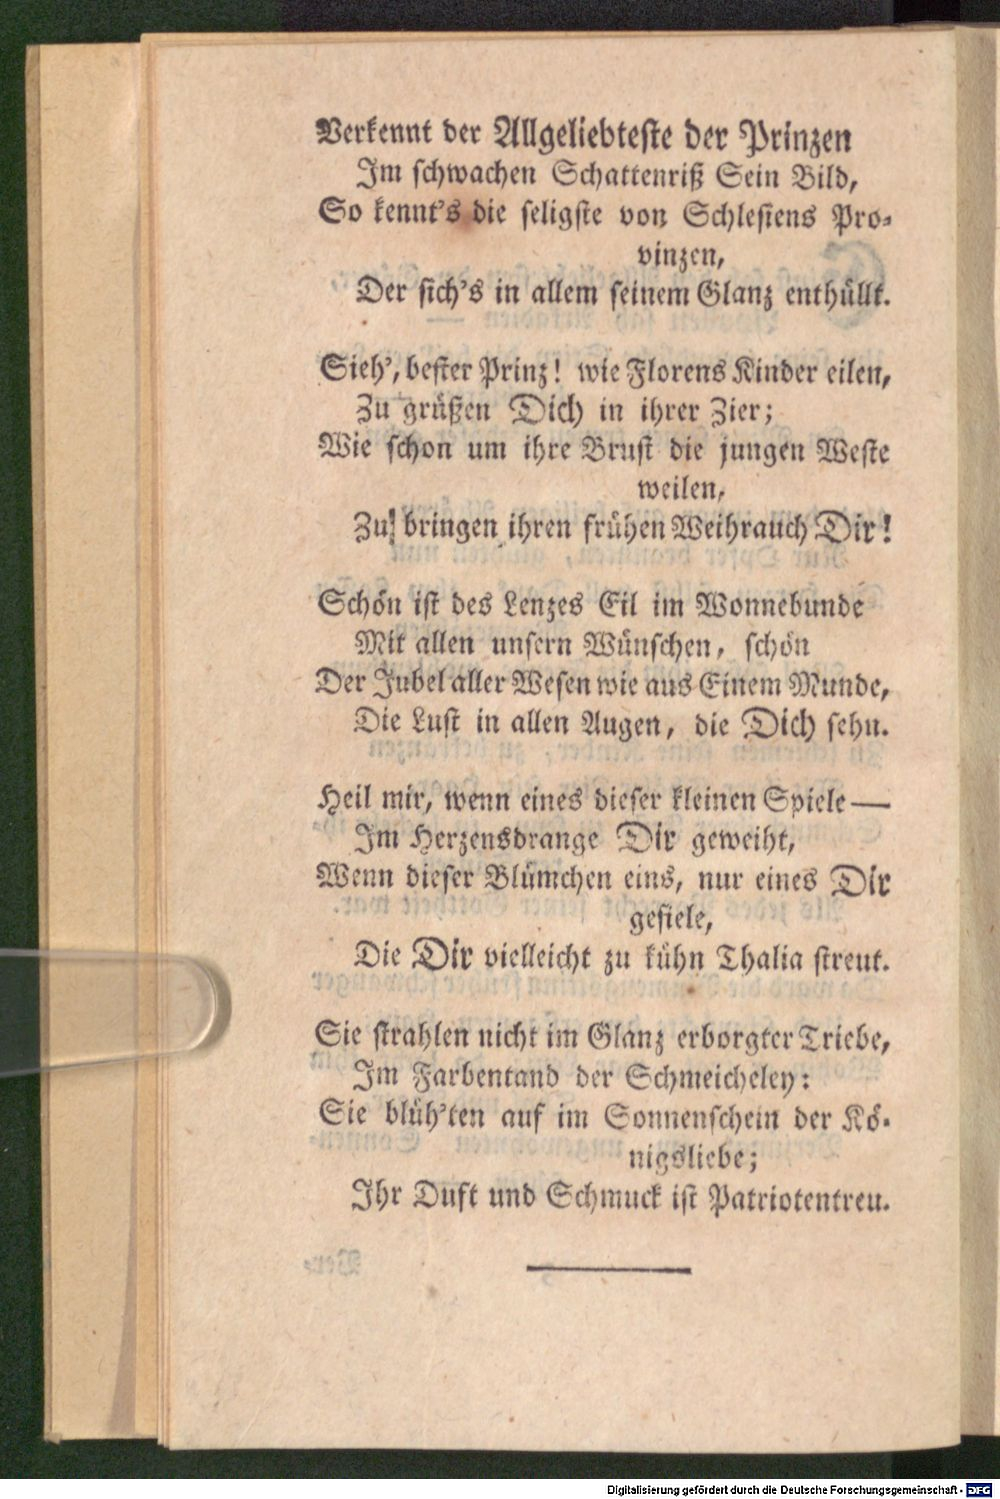 Verkennt der Allgeliebteste der Prinzen
Im schwachen Schattenriß Sein Bild,
So kennt's die seligste von Schlesiens Pro-
vinzen,
Der sich's in allem seinem Glanz enthüllt.
Sieh', bester Prinz! wie Florens Kinder eilen,
Zu grüßen Dich in ihrer Zier;
Wie schon um ihre Brust die jungen Weste
weilen,
Zu bringen ihren frühen Weihrauch Dir!
Schön ist des Lenzes Eil im Wonnebunde
Mit allen unsern Wünschen, schön
Der Jubel aller Wesen wie aus Einem Munde,
Die Lust in allen Augen, die Dich sehn.
Heil mir, wenn eines dieser kleinen Spiele —
Im Herzensdrange Dir geweiht,
Wenn dieser Blümchen eins, nur eines Dir
gefiele,
Die Dir vielleicht zu kühn Thalia streut.
Sie strahlen nicht im Glanz erborgter Triebe,
Im Farbentand der Schmeicheley:
Sie blüh'ten auf im Sonnenschein der Kö-
nigsliebe;
Ihr Duft und Schmuck ist Patriotentreu.
Digitalisierung gefördert durch die Deutsche Forschungsgemeinschaft - DFG